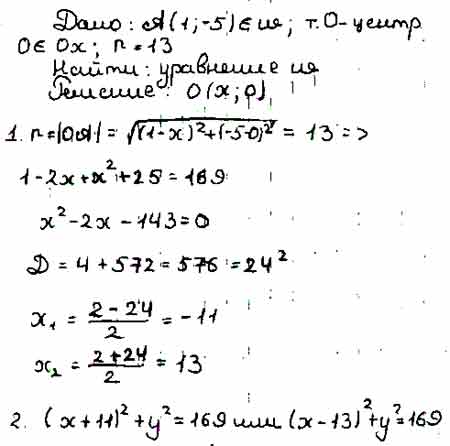 Дано: A(1;-5)∈ω; т.О-центр
О∈Ох; r=13
Найти: уравнение ω
Решение: О(x;0)
1. r=|OA|=√((1-x)²+(-5-0)²) = 13 =>
1-2x+x²+25=169
x²-2x-143=0
D=4+572=576=24²
x₁=(2-24)/2=-11
x₂=(2+24)/2=13
2. (x+11)²+y²=169 или (x-13)²+y²=169